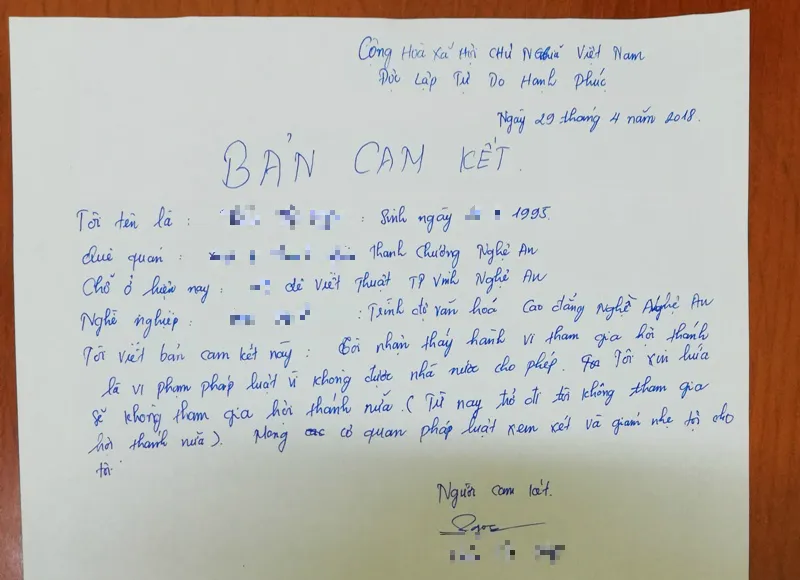 Cộng Hoà Xã Hội Chủ Nghĩa Việt Nam
Độc Lập Tự Do Hạnh Phúc
Ngày 29 tháng 4 năm 2018.
BẢN CAM KẾT.
Tôi tên là : : Sinh ngày 1995.
Quê quán : Thanh Chương Nghệ An
Chỗ ở hiện nay : Lê Viết Thuật TP Vinh Nghệ An
Nghề nghiệp : : Trình độ văn hoá Cao đẳng Nghề Nghệ An
Tôi viết bản cam kết này : Tôi nhận thấy hành vi tham gia hội thánh
là vi phạm pháp luật vì không được nhà nước cho phép. Tôi xin hứa
sẽ không tham gia hội thánh nữa. (Từ nay trở đi tôi không tham gia
hội thánh nữa). Mong cơ quan pháp luật xem xét và giảm nhẹ tội cho
tôi
Người cam kết.